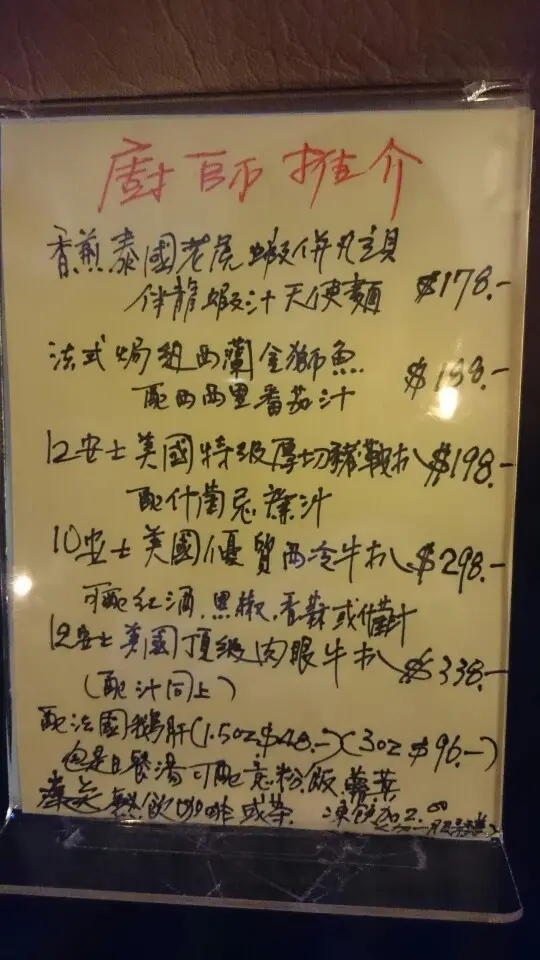 廚師推介
香煎泰國老虎蝦併丸貝
伴龍蝦汁天使麵 $178.-
法式焗紐西蘭金獅魚 $188.-
配西西里番茄汁
12安士美國特級厚切豬鞍扒 $198.-
配什菌忌廉汁
10安士美國優質西冷牛扒 $298.-
可配紅酒.黑椒.香蒜或備汁
12安士美國頂級肉眼牛扒 $338.-
(配汁同上)
配法國鵝肝(1.5oz $48.-)(3oz $96.-)
是日餐湯可配意粉飯薯菜
熱飲咖啡或茶 凍飲